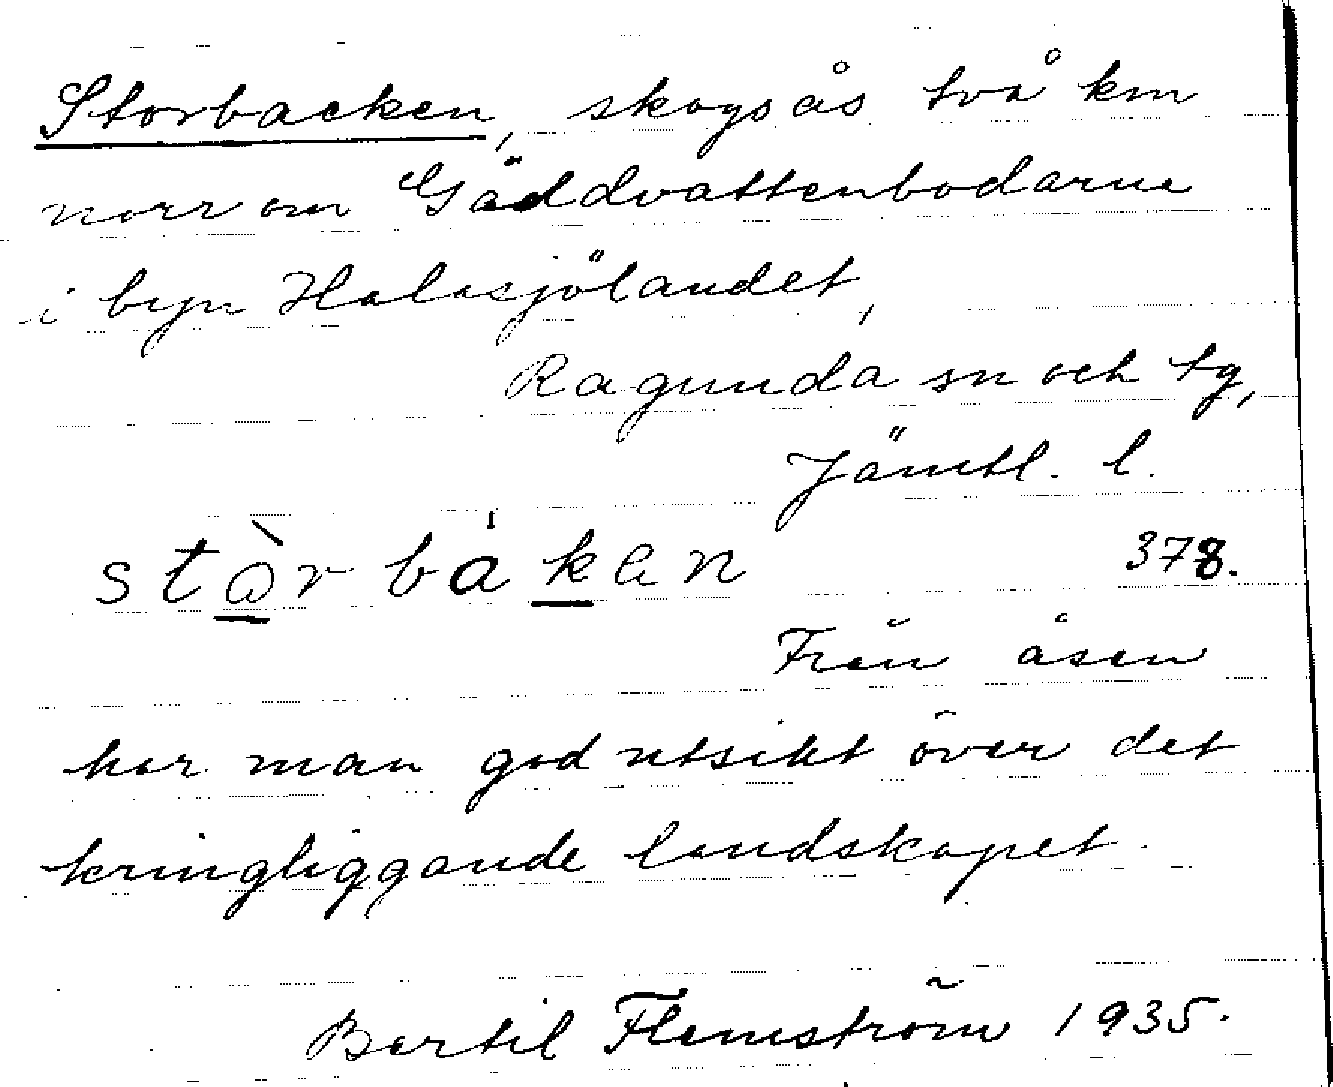 Storbacken, skogsås två km
norr om Gäddvattenbodarne
i byn Halasjölandet,
Ragunda sn och tg,
Jämtl. l.
stòrbákan
378.
Från åsen
har man god utsikt över det
kringliggande landskapet.
Bertil Flemström 1935.